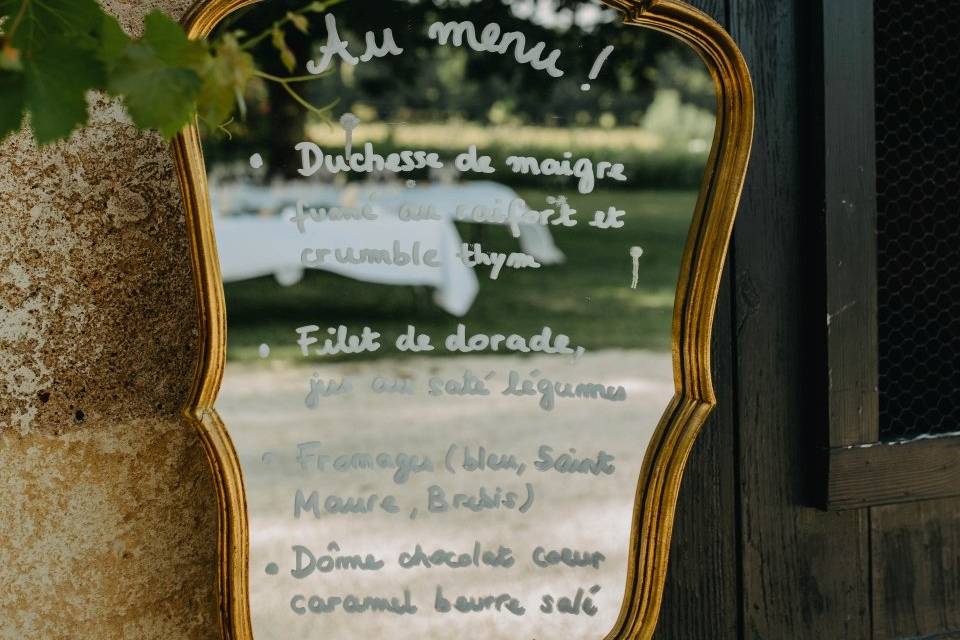 Au menu !
• Duchesse de maigre
fumé au raifort et
crumble thym
• Filet de dorade,
jus au saté légumes
• Fromages (bleu, Saint
Maure, Brebis)
• Dôme chocolat coeur
caramel beurre salé